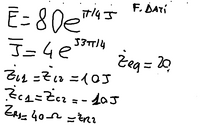 E̅ = 80e^{π/4 J}
F. DATI
J̅ = 4e^{J3π/4}
Ż_{L1} = Ż_{L2} = 10J
Ż_{EQ} = 20
Ż_{C1} = Ż_{C2} = -10J
Ż_{R1} = 40 Ω = Ż_{R2}